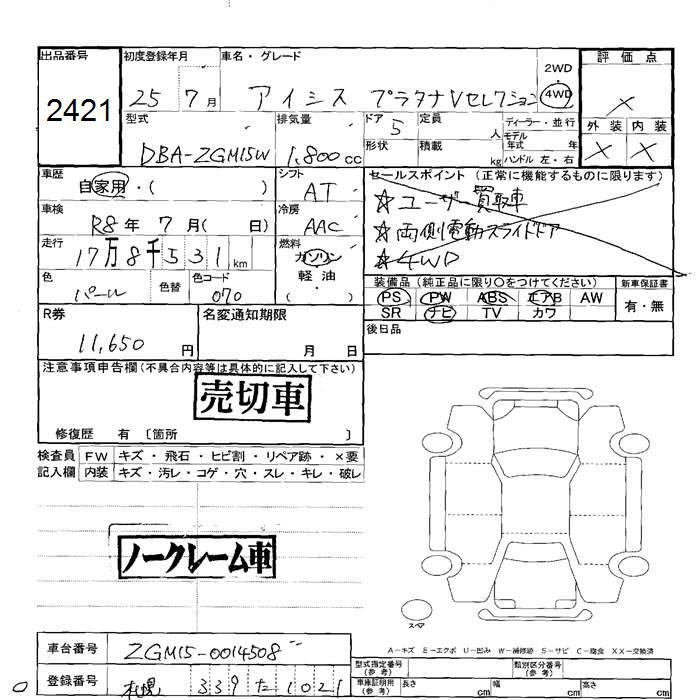 出品番号
2421
初度登録年月
25 7月
車名・グレード
アイシス プラタナVセレクション
2WD
4WD
評価点
×
外装 内装
× ×
型式
DBA-ZGM15W
排気量
1,800cc
ドア 5
形状
定員 人
積載 kg
ディーラー・並行
モデル年式 年
ハンドル 左・右
車歴
自家用・( )
シフト
AT
セールスポイント (正常に機能するものに限ります)
☆ユーザー買取車
☆両側電動スライドドア
☆4WD
車検
R8年 7月( 日)
冷房
AAC
走行
17万8千531km
燃料
ガソリン
軽油
( )
色
パール
色替
色コード
070
装備品 (純正品に限り○をつけてください)
PS PW ABS エアB AW
SR ナビ TV カワ
新車保証書
有・無
R券
11,650円
名変通知期限
月 日
後日品
注意事項申告欄(不具合内容等は具体的に記入して下さい)
売切車
修復歴 有 〔箇所 〕
検査員記入欄
FW キズ・飛石・ヒビ割・リペア跡・×要
内装 キズ・汚レ・コゲ・穴・スレ・キレ・破レ
ノークレーム車
スペア
A-キズ E-エクボ U-凹み W-補修跡 S-サビ C-腐食 XX-交換済
車台番号
ZGM15-0014508
登録番号
札幌 339 た 1021
型式指定番号(参考)
類別区分番号(参考)
車庫証明用(参考)
長さ cm
幅 cm
高さ cm